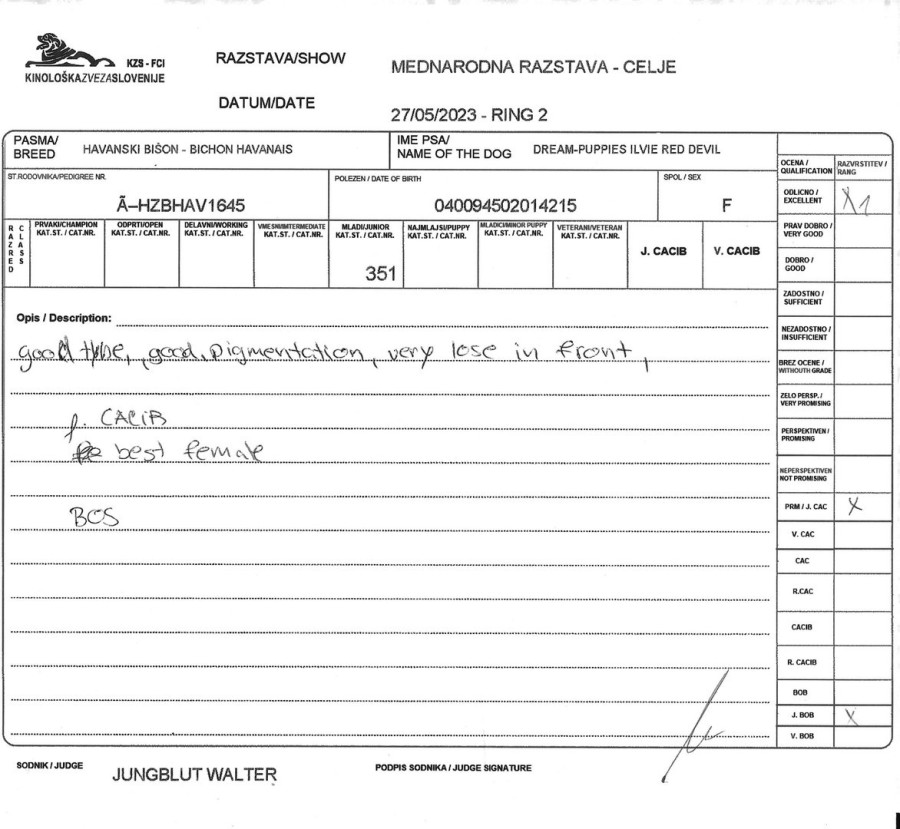 KZS - FCI
KINOLOŠKAZVEZASLOVENIJE
RAZSTAVA/SHOW
MEDNARODNA RAZSTAVA - CELJE
DATUM/DATE
27/05/2023 - RING 2
PASMA/
BREED
HAVANSKI BIŠON - BICHON HAVANAIS
IME PSA/
NAME OF THE DOG
DREAM-PUPPIES ILVIE RED DEVIL
OCENA /
QUALIFICATION
RAZVRSTITEV /
RANG
ŠT.RODOVNIKA/PEDIGREE NR.
Ã–HZBHAV1645
POLEŽEN / DATE OF BIRTH
040094502014215
SPOL / SEX
F
RAZRED
CLASS
PRVAKI/CHAMPION
KAT.ŠT. / CAT.NR.
ODPRTI/OPEN
KAT.ŠT. / CAT.NR.
DELAVNI/WORKING
KAT.ŠT. / CAT.NR.
VMESNI/INTERMEDIATE
KAT.ŠT. / CAT.NR.
MLADI/JUNIOR
KAT.ŠT. / CAT.NR.
351
NAJMLAJŠI/PUPPY
KAT.ŠT. / CAT.NR.
MLADIČI/MINOR PUPPY
KAT.ŠT. / CAT.NR.
VETERANI/VETERAN
KAT.ŠT. / CAT.NR.
J. CACIB
V. CACIB
Opis / Description:
good type, good pigmentation, very lose in front,
J. CACIB
best female
BOS
ODLIČNO /
EXCELLENT
X1
PRAV DOBRO /
VERY GOOD
DOBRO /
GOOD
ZADOSTNO /
SUFFICIENT
NEZADOSTNO /
INSUFFICIENT
BREZ OCENE /
WITHOUTH GRADE
ZELO PERSP. /
VERY PROMISING
PERSPEKTIVEN /
PROMISING
NEPERSPEKTIVEN
NOT PROMISING
PRM / J. CAC X
V. CAC
CAC
R.CAC
CACIB
R. CACIB
BOB
J. BOB X
V. BOB
SODNIK / JUDGE
JUNGBLUT WALTER
PODPIS SODNIKA / JUDGE SIGNATURE